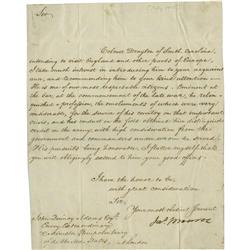 Sir,
Colonel Drayton of South Carolina,
intending to visit England and other parts of Europe,
I take much interest in introducing him to your acquaint-
ance, and recommending him to your kind attention—
He is one of our most respectable citizens. Eminent at
the Bar, at the commencement of the late war, he relin-
quished a profession, the emoluments of which were very
considerable, for the service of his country on that important
crisis, and
in the army, with high consideration from the
government and
His pursuits being honorable, I flatter myself that
you will obligingly extend to him your good offices.
I have the honor to be,
with great consideration
Sir,
Your most obedient servant
Jas. Monroe
John Quincy Adams Esqr.
Envoy Extraordinary
& Minister Plenipotentiary
of the United States, London